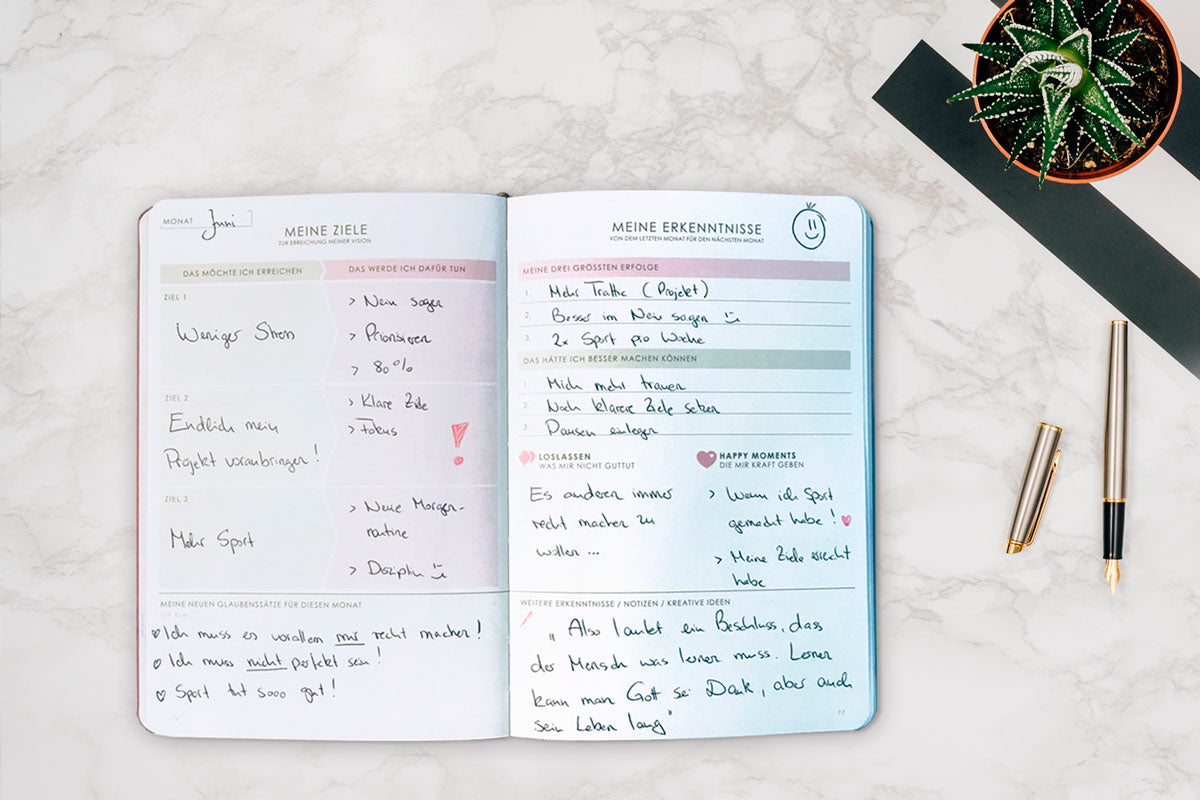 MONAT Juni
MEINE ZIELE
ZUR ERREICHUNG MEINER VISION
DAS MÖCHTE ICH ERREICHEN
DAS WERDE ICH DAFÜR TUN
ZIEL 1
Weniger Stress
> Nein sagen
> Priorisieren
> 80%
ZIEL 2
Endlich mein
Projekt voranbringen!
> Klare Ziele
> Fokus
!
ZIEL 3
Mehr Sport
> Neue Morgen-
routine
> Disziplin
MEINE NEUEN GLAUBENSSÄTZE FÜR DIESEN MONAT
Ich muss es vorallem mir recht machen!
Ich muss nicht perfekt sein!
Sport tut sooo gut!
MEINE ERKENNTNISSE
VON DEM LETZTEN MONAT FÜR DEN NÄCHSTEN MONAT
MEINE DREI GRÖSSTEN ERFOLGE
1. Mehr Traffic (Projekt)
2. Besser im Nein sagen
3. 2x Sport pro Woche
DAS HÄTTE ICH BESSER MACHEN KÖNNEN
1. Mich mehr trauen
2. Noch klarere Ziele setzen
3. Pausen einlegen
LOSLASSEN
WAS MIR NICHT GUTTUT
Es anderen immer
recht machen zu
wollen ...
HAPPY MOMENTS
DIE MIR KRAFT GEBEN
> Wenn ich Sport
gemacht habe!
> Meine Ziele erreicht
habe
WEITERE ERKENNTNISSE / NOTIZEN / KREATIVE IDEEN
„Also lautet ein Beschluss, dass
der Mensch was lernen muss. Lernen
kann man Gott sei Dank, aber auch
sein Leben lang"